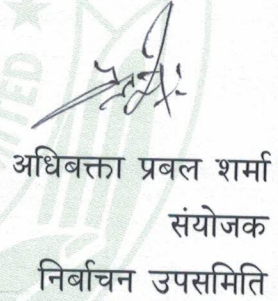 अधिबक्ता प्रबल शर्मा
संयोजक
निर्बाचन उपसमिति